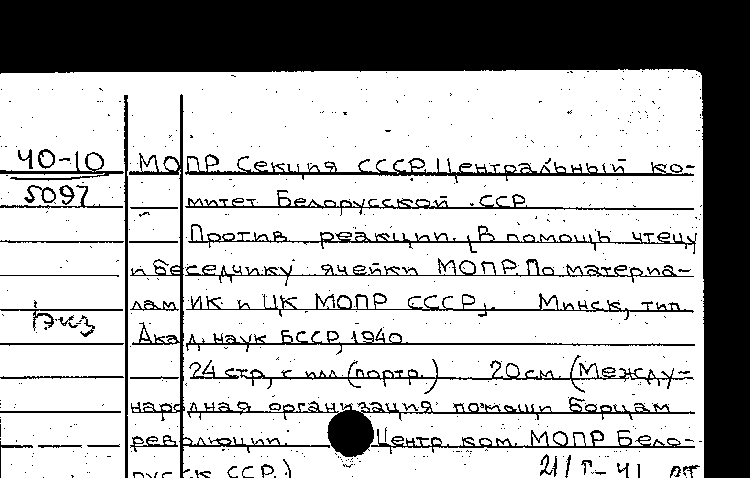 40-10
5097
МОПР. Секция СССР. Центральный ко-
митет Белорусской ССР
Против реакции. [В помощь чтецу
и беседчику ячейки МОПР. По материа-
лам ИК и ЦК МОПР СССР]. Минск, тип.
Акад. наук БССР, 1940.
24 стр., с илл (портр.) 20 см. (Между-
народная организация помощи борцам
революции. Центр. ком. МОПР Бело-
русск ССР.)